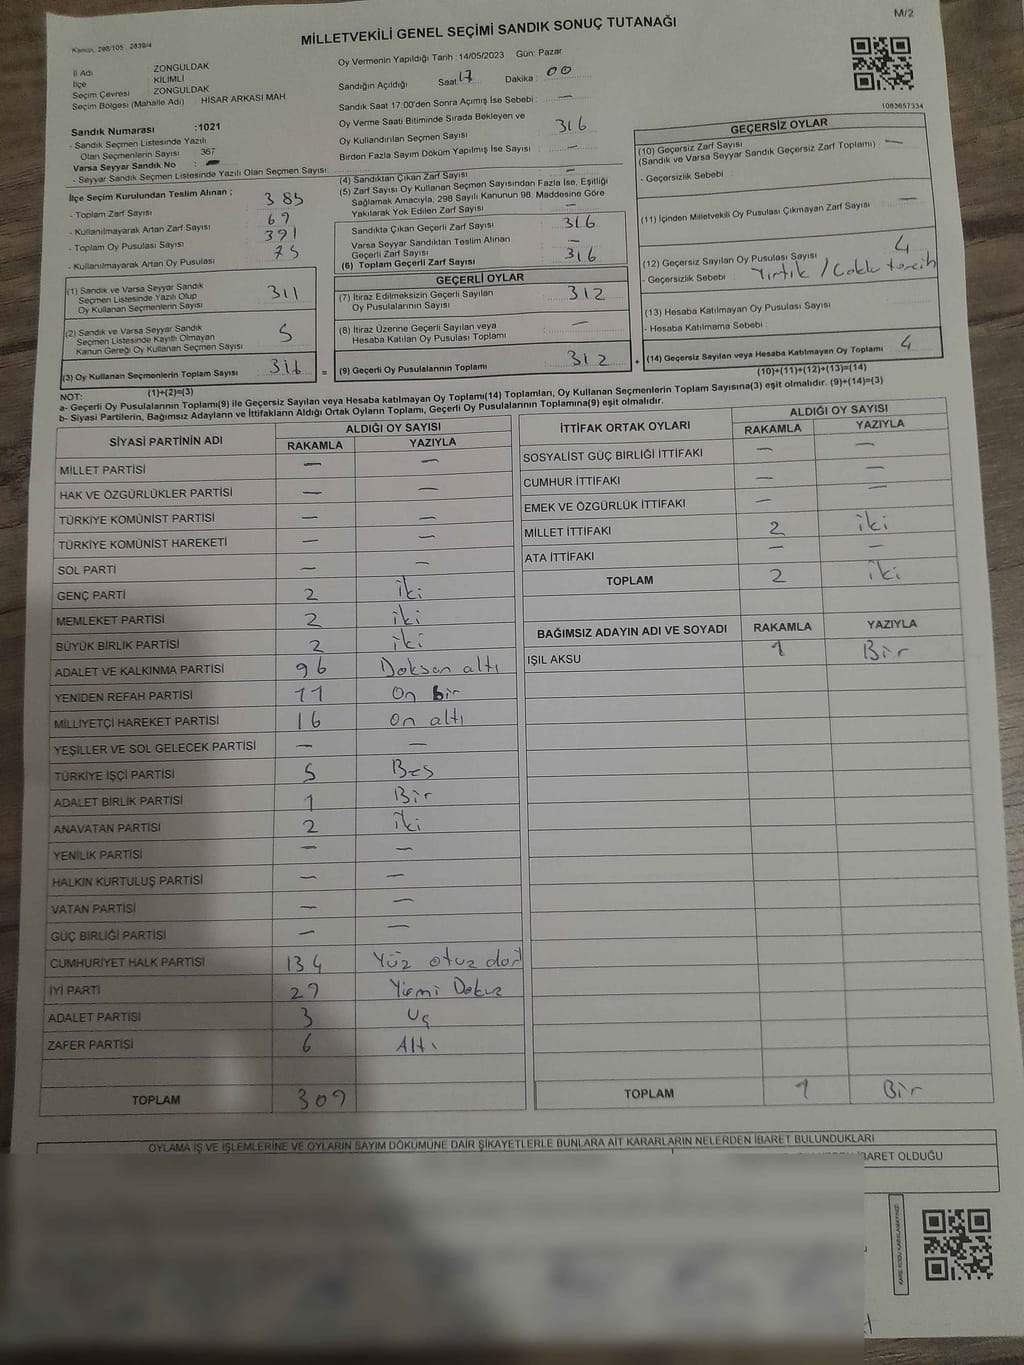 M/2
MİLLETVEKİLİ GENEL SEÇİMİ SANDIK SONUÇ TUTANAĞI
Kanun, 298/105 , 2839/4
İl Adı ZONGULDAK
İlçe KİLİMLİ
Seçim Çevresi ZONGULDAK
Seçim Bölgesi (Mahalle Adı) HİSAR ARKASI MAH.
Sandık Numarası :1021
- Sandık Seçmen Listesinde Yazılı
Olan Seçmenlerin Sayısı 367
Varsa Seyyar Sandık No
- Seyyar Sandık Seçmen Listesinde Yazılı Olan Seçmen Sayısı:
Oy Vermenin Yapıldığı Tarih : 14/05/2023 Gün: Pazar
Sandığın Açıldığı Saat 17 Dakika : 00
Sandık Saat 17:00'den Sonra Açımış İse Sebebi : —
Oy Verme Saati Bitiminde Sırada Bekleyen ve
Oy Kullandırılan Seçmen Sayısı 316
Birden Fazla Sayım Döküm Yapılmış İse Sayısı : —
1083657334
İlçe Seçim Kurulundan Teslim Alınan ;
- Toplam Zarf Sayısı 385
- Kullanılmayarak Artan Zarf Sayısı 69
- Toplam Oy Pusulası Sayısı 391
- Kullanılmayarak Artan Oy Pusulası 75
(1) Sandık ve Varsa Seyyar Sandık
Seçmen Listesinde Yazılı Olup
Oy Kullanan Seçmenlerin Sayısı 311
(2) Sandık ve Varsa Seyyar Sandık
Seçmen Listesinde Kayıtlı Olmayan
Kanun Gereği Oy Kullanan Seçmen Sayısı 5
(3) Oy Kullanan Seçmenlerin Toplam Sayısı 316 =
(1)+(2)=(3)
(4) Sandıktan Çıkan Zarf Sayısı —
(5) Zarf Sayısı Oy Kullanan Seçmen Sayısından Fazla İse, Eşitliği
Sağlamak Amacıyla, 298 Sayılı Kanunun 98. Maddesine Göre
Yakılarak Yok Edilen Zarf Sayısı —
Sandıkta Çıkan Geçerli Zarf Sayısı 316
Varsa Seyyar Sandıktan Teslim Alınan
Geçerli Zarf Sayısı —
(6) Toplam Geçerli Zarf Sayısı 316
GEÇERLİ OYLAR
(7) İtiraz Edilmeksizin Geçerli Sayılan
Oy Pusulalarının Sayısı 312
(8) İtiraz Üzerine Geçerli Sayılan veya
Hesaba Katılan Oy Pusulası Toplamı —
(9) Geçerli Oy Pusulalarının Toplamı 312 +
GEÇERSİZ OYLAR
(10) Geçersiz Zarf Sayısı —
(Sandık ve Varsa Seyyar Sandık Geçersiz Zarf Toplamı)
- Geçersizlik Sebebi :
(11) İçinden Milletvekili Oy Pusulası Çıkmayan Zarf Sayısı —
(12) Geçersiz Sayılan Oy Pusulası Sayısı 4
- Geçersizlik Sebebi : Yırtık / Çoklu tercih
(13) Hesaba Katılmayan Oy Pusulası Sayısı
- Hesaba Katılmama Sebebi :
(14) Geçersiz Sayılan veya Hesaba Katılmayan Oy Toplamı 4
(10)+(11)+(12)+(13)=(14)
NOT:
a- Geçerli Oy Pusulalarının Toplamı(9) ile Geçersiz Sayılan veya Hesaba katılmayan Oy Toplamı(14) Toplamları, Oy Kullanan Seçmenlerin Toplam Sayısına(3) eşit olmalıdır. (9)+(14)=(3)
b- Siyasi Partilerin, Bağımsız Adayların ve İttifakların Aldığı Ortak Oyların Toplamı, Geçerli Oy Pusulalarının Toplamına(9) eşit olmalıdır.
SİYASİ PARTİNİN ADI ALDIĞI OY SAYISI
RAKAMLA YAZIYLA
MİLLET PARTİSİ — —
HAK VE ÖZGÜRLÜKLER PARTİSİ — —
TÜRKİYE KOMÜNİST PARTİSİ — —
TÜRKİYE KOMÜNİST HAREKETİ — —
SOL PARTİ — —
GENÇ PARTİ 2 iki
MEMLEKET PARTİSİ 2 iki
BÜYÜK BİRLİK PARTİSİ 2 iki
ADALET VE KALKINMA PARTİSİ 96 Doksan altı
YENİDEN REFAH PARTİSİ 11 On bir
MİLLİYETÇİ HAREKET PARTİSİ 16 On altı
YEŞİLLER VE SOL GELECEK PARTİSİ — —
TÜRKİYE İŞÇİ PARTİSİ 5 Beş
ADALET BİRLİK PARTİSİ 1 Bir
ANAVATAN PARTİSİ 2 iki
YENİLİK PARTİSİ — —
HALKIN KURTULUŞ PARTİSİ — —
VATAN PARTİSİ — —
GÜÇ BİRLİĞİ PARTİSİ — —
CUMHURİYET HALK PARTİSİ 134 Yüz otuz dört
İYİ PARTİ 29 Yirmi Dokuz
ADALET PARTİSİ 3 Üç
ZAFER PARTİSİ 6 Altı
TOPLAM 309
İTTİFAK ORTAK OYLARI ALDIĞI OY SAYISI
RAKAMLA YAZIYLA
SOSYALİST GÜÇ BİRLİĞİ İTTİFAKI — —
CUMHUR İTTİFAKI — —
EMEK VE ÖZGÜRLÜK İTTİFAKI — —
MİLLET İTTİFAKI 2 iki
ATA İTTİFAKI — —
TOPLAM 2 iki
BAĞIMSIZ ADAYIN ADI VE SOYADI RAKAMLA YAZIYLA
IŞIL AKSU 1 Bir
TOPLAM 1 Bir
OYLAMA İŞ VE İŞLEMLERİNE VE OYLARIN SAYIM DÖKÜMÜNE DAİR ŞİKAYETLERLE BUNLARA AİT KARARLARIN NELERDEN İBARET BULUNDUKLARI
İBARET OLDUĞU